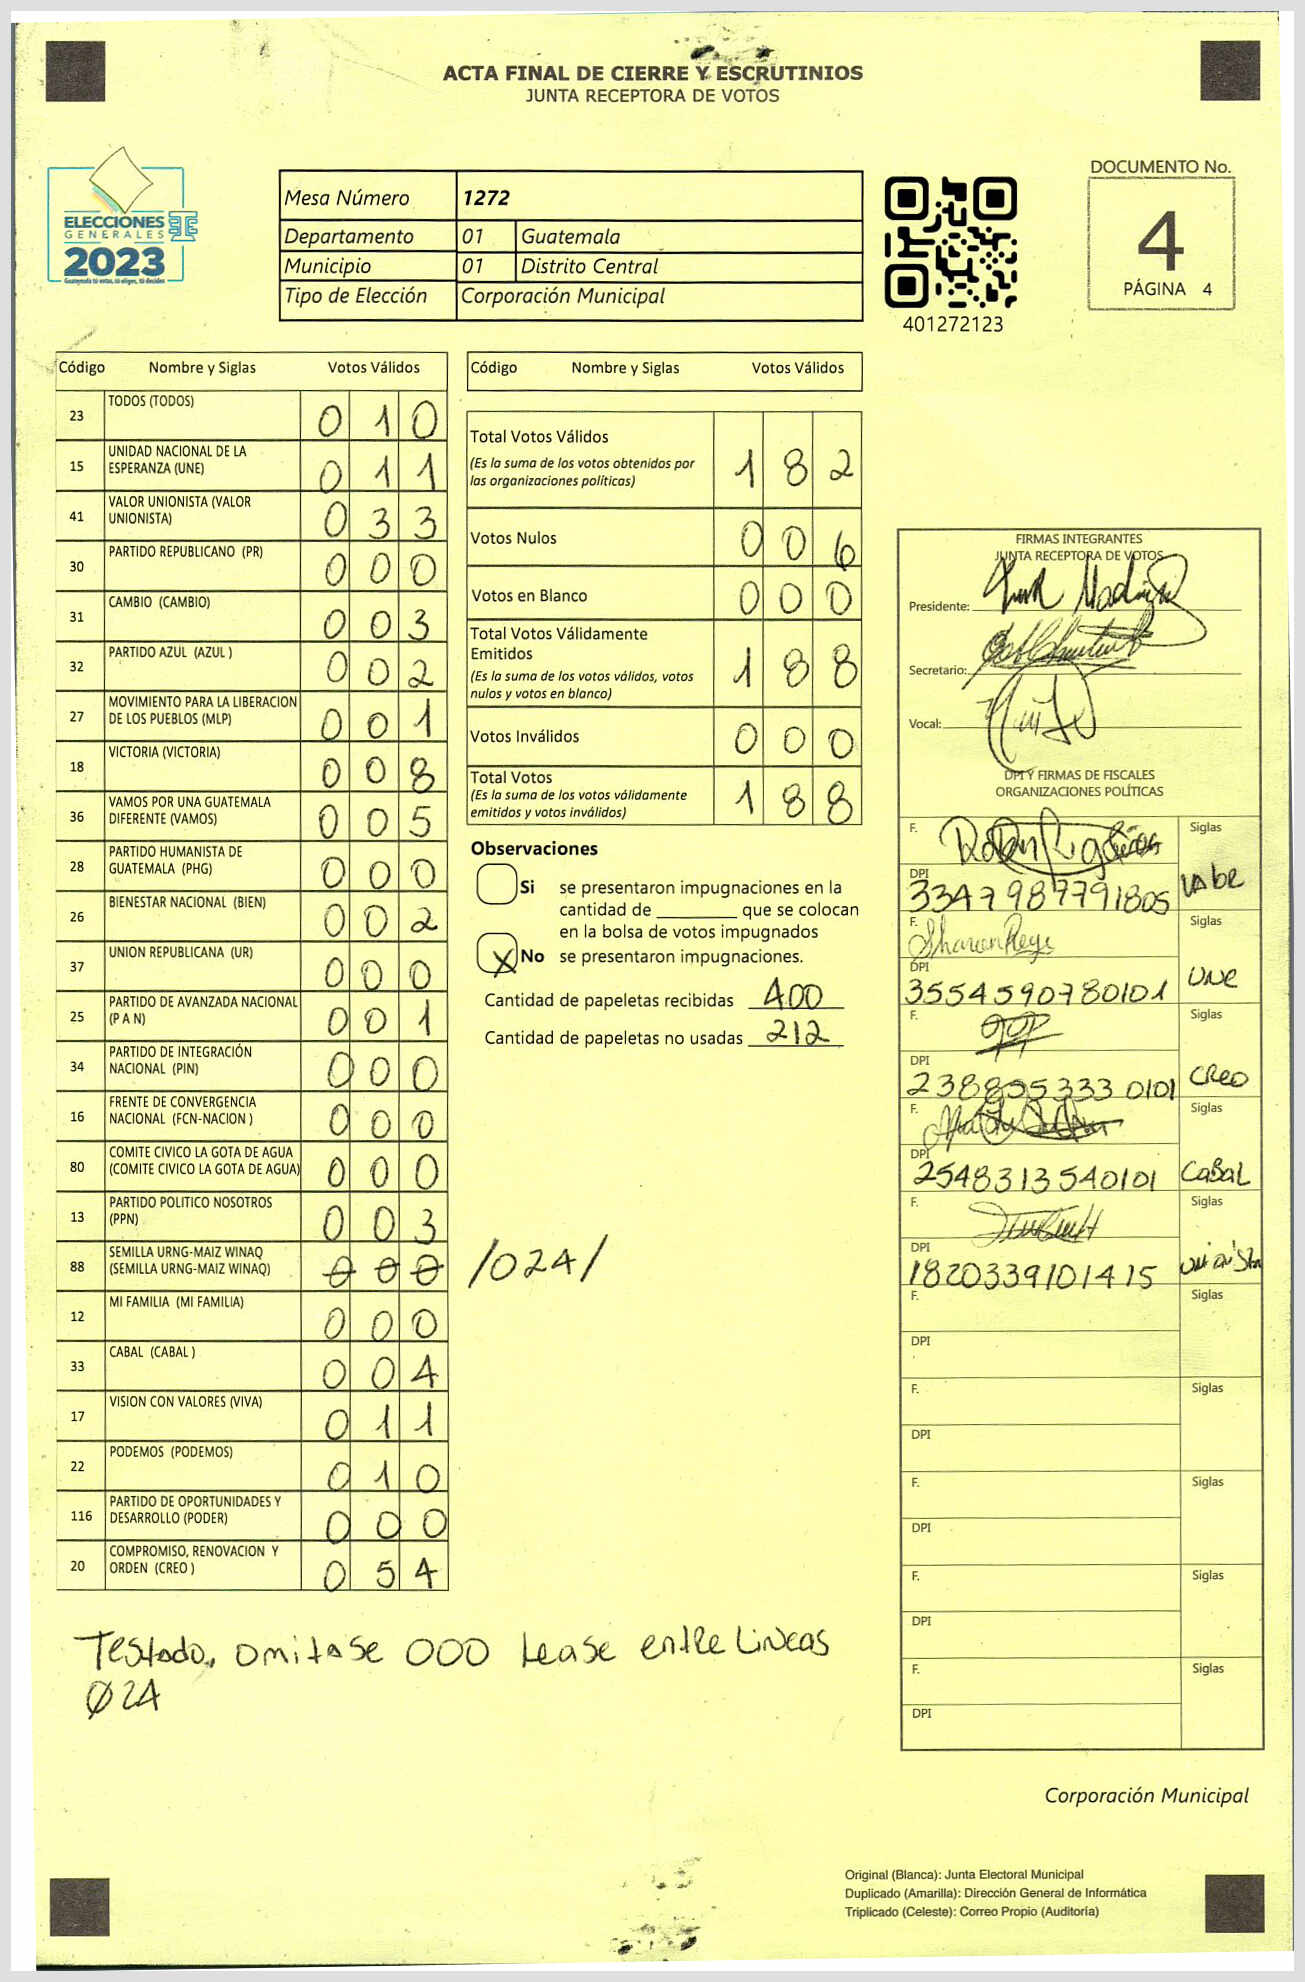 ACTA FINAL DE CIERRE Y ESCRUTINIOS
JUNTA RECEPTORA DE VOTOS
ELECCIONES
GENERALES
2023
Guatemala tú votas, tú eliges, tú decides
Mesa Número 1272
Departamento 01 Guatemala
Municipio 01 Distrito Central
Tipo de Elección Corporación Municipal
401272123
DOCUMENTO No.
4
PÁGINA 4
Código Nombre y Siglas Votos Válidos
23 TODOS (TODOS) 0 1 0
15 UNIDAD NACIONAL DE LA
ESPERANZA (UNE) 0 1 1
41 VALOR UNIONISTA (VALOR
UNIONISTA) 0 3 3
30 PARTIDO REPUBLICANO (PR) 0 0 0
31 CAMBIO (CAMBIO) 0 0 3
32 PARTIDO AZUL (AZUL ) 0 0 2
27 MOVIMIENTO PARA LA LIBERACION
DE LOS PUEBLOS (MLP) 0 0 1
18 VICTORIA (VICTORIA) 0 0 8
36 VAMOS POR UNA GUATEMALA
DIFERENTE (VAMOS) 0 0 5
28 PARTIDO HUMANISTA DE
GUATEMALA (PHG) 0 0 0
26 BIENESTAR NACIONAL (BIEN) 0 0 2
37 UNION REPUBLICANA (UR) 0 0 0
25 PARTIDO DE AVANZADA NACIONAL
(P A N) 0 0 1
34 PARTIDO DE INTEGRACIÓN
NACIONAL (PIN) 0 0 0
16 FRENTE DE CONVERGENCIA
NACIONAL (FCN-NACION ) 0 0 0
80 COMITE CIVICO LA GOTA DE AGUA
(COMITE CIVICO LA GOTA DE AGUA) 0 0 0
13 PARTIDO POLITICO NOSOTROS
(PPN) 0 0 3
88 SEMILLA URNG-MAIZ WINAQ
(SEMILLA URNG-MAIZ WINAQ) 0 0 0 /024/
12 MI FAMILIA (MI FAMILIA) 0 0 0
33 CABAL (CABAL ) 0 0 4
17 VISION CON VALORES (VIVA) 0 1 1
22 PODEMOS (PODEMOS) 0 1 0
116 PARTIDO DE OPORTUNIDADES Y
DESARROLLO (PODER) 0 0 0
20 COMPROMISO, RENOVACION Y
ORDEN (CREO ) 0 5 4
Testado, omitase 000 Lease entre Lineas
024
Código Nombre y Siglas Votos Válidos
Total Votos Válidos
(Es la suma de los votos obtenidos por
las organizaciones políticas) 1 8 2
Votos Nulos 0 0 6
Votos en Blanco 0 0 0
Total Votos Válidamente
Emitidos
(Es la suma de los votos válidos, votos
nulos y votos en blanco) 1 8 8
Votos Inválidos 0 0 0
Total Votos
(Es la suma de los votos válidamente
emitidos y votos inválidos) 1 8 8
Observaciones
Si se presentaron impugnaciones en la
cantidad de ________ que se colocan
en la bolsa de votos impugnados
X No se presentaron impugnaciones.
Cantidad de papeletas recibidas 400
Cantidad de papeletas no usadas 212
FIRMAS INTEGRANTES
JUNTA RECEPTORA DE VOTOS
Presidente:
Secretario:
Vocal:
DPI Y FIRMAS DE FISCALES
ORGANIZACIONES POLÍTICAS
F. Siglas
DPI
3347987791805
F. Sharon Reyes Siglas
DPI UNE
3554590780101
F. Siglas
DPI CREO
2388953330101
F. Siglas
DPI CABAL
2548313540101
F. Siglas
DPI unionista
1820339101415
F. Siglas
DPI
F. Siglas
DPI
F. Siglas
DPI
F. Siglas
DPI
F. Siglas
DPI
Corporación Municipal
Original (Blanca): Junta Electoral Municipal
Duplicado (Amarilla): Dirección General de Informática
Triplicado (Celeste): Correo Propio (Auditoría)